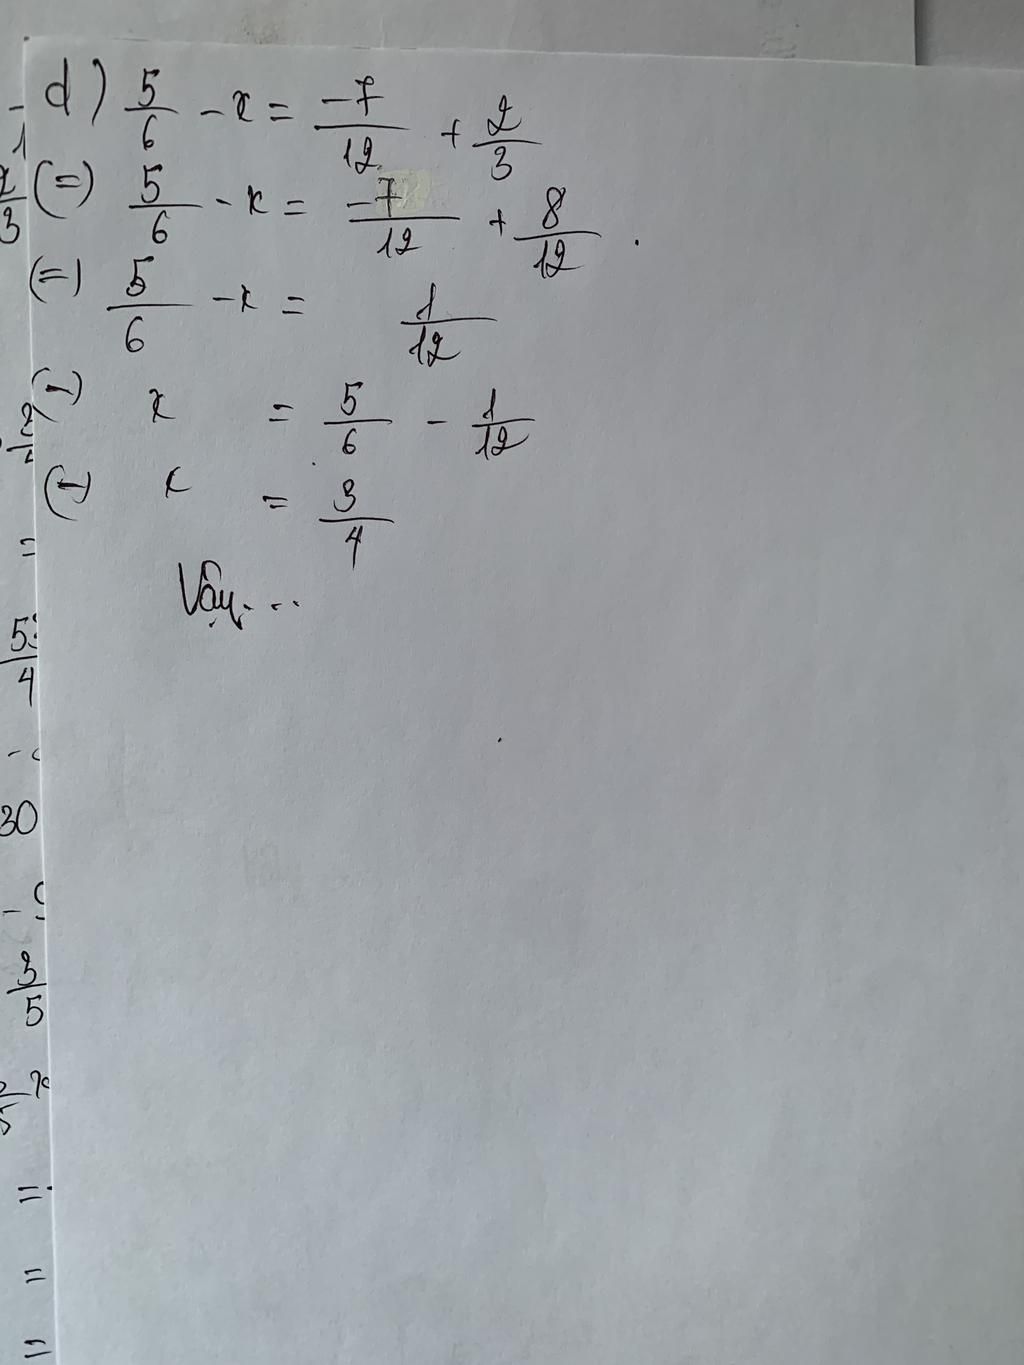 d) 5/6 - x = -7/12 + 2/3
(=) 5/6 - x = -7/12 + 8/12 .
(=) 5/6 - x = 1/12
(-) x = 5/6 - 1/12
(-) x = 3/4
Vậy...